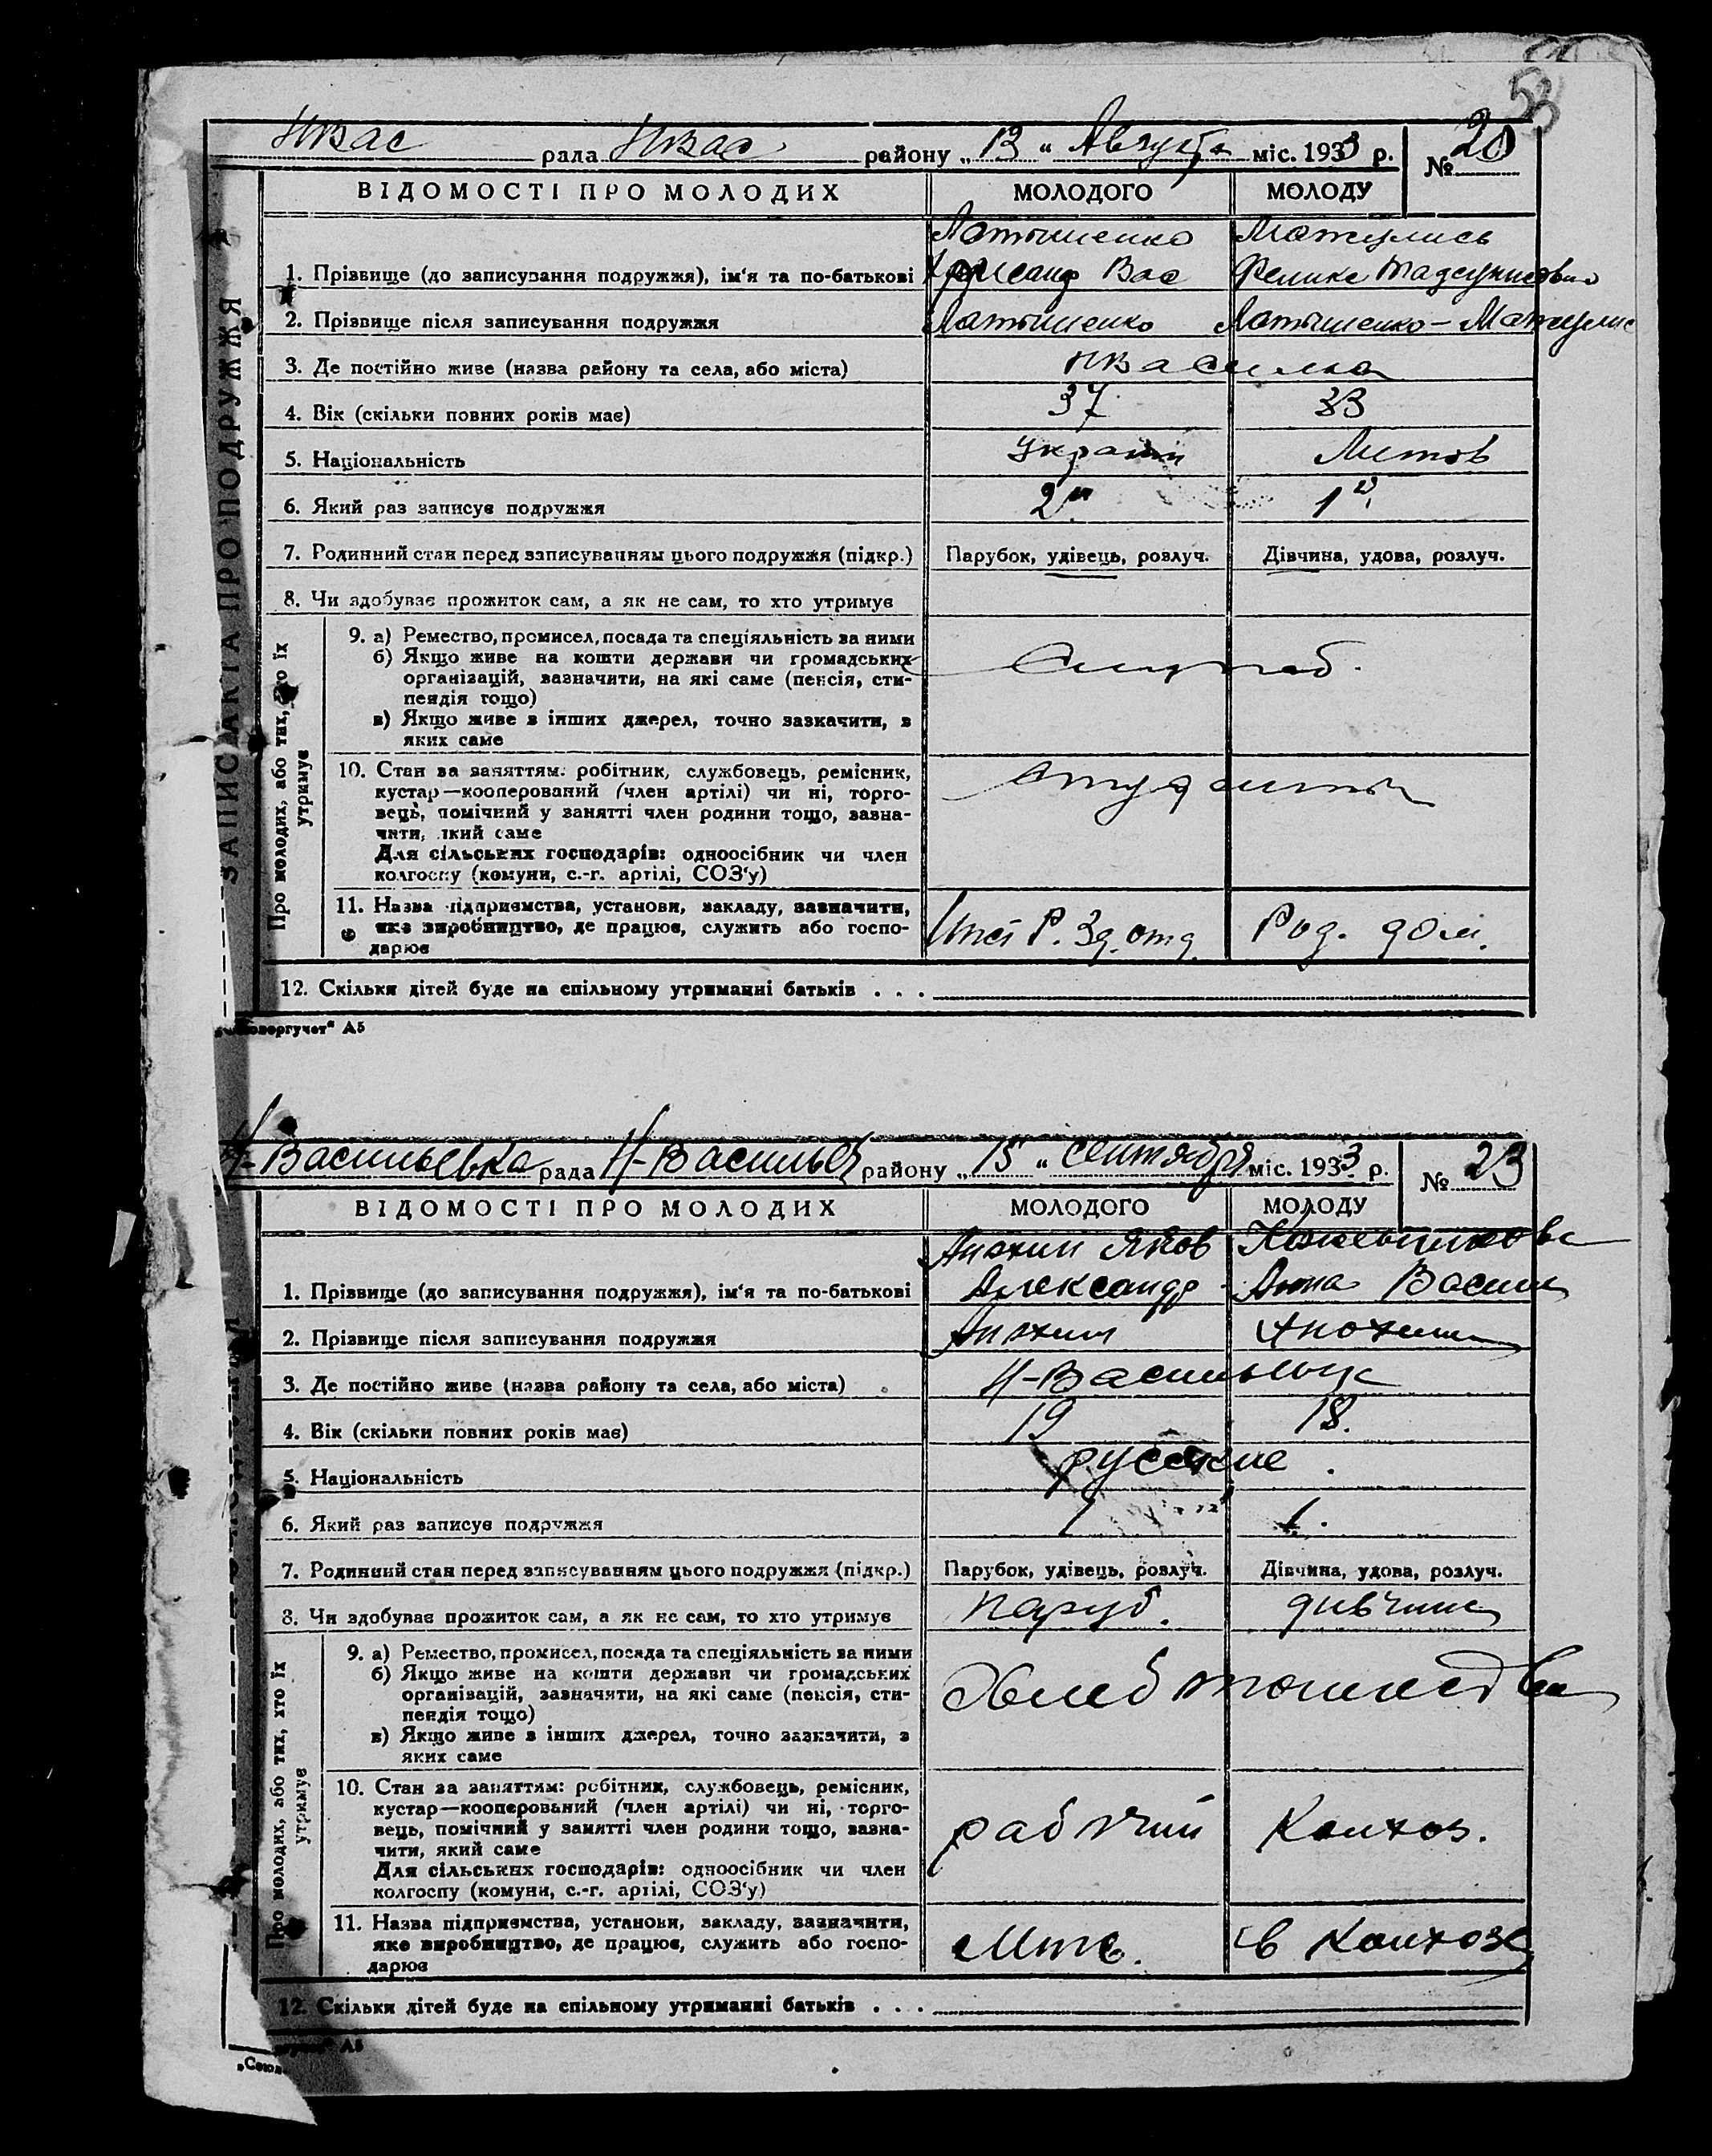 53
НВас рада НВас району „13" Августа міс. 1933 р. № 20
ВІДОМОСТІ ПРО МОЛОДИХ МОЛОДОГО МОЛОДУ
Латышенко Мажулись
1. Прізвище (до записування подружжя), ім'я та по-батькові Вас
2. Прізвище після записування подружжя Латышенко Латышенко-Мажулис
3. Де постійно живе (назва району та села, або міста)
4. Вік (скільки повних років має) 37 33
5. Національність
6. Який раз записує подружжя 2й 1й
7. Родинний стан перед записуванням цього подружжя (підкр.) Парубок, удівець, розлуч. Дівчина, удова, розлуч.
8. Чи здобуває прожиток сам, а як не сам, то хто утримує
ЗАПИС АКТА ПРО ПОДРУЖЖЯ
Про молодих, або тих, хто їх утримує
9. а) Ремество, промисел, посада та спеціяльність за ними
б) Якщо живе на кошти держави чи громадських
організацій, зазначити, на які саме (пенсія, сти-
пендія тощо)
в) Якщо живе з інших джерел, точно зазначити, з
яких саме
10. Стан за заняттям: робітник, службовець, ремісник,
кустар—кооперований (член артілі) чи ні, торго-
вець, помічний у занятті член родини тощо, зазна-
чити, який саме
Для сільських господарів: одноосібник чи член
колгоспу (комуни, с.-г. артілі, СОЗ'у)
11. Назва підприємства, установи, закладу, зазначити,
яке виробництво, де працює, служить або госпо-
дарює
Р. Зд. отд. Род. дом.
12. Скільки дітей буде на спільному утриманні батьків . . .
А5
Н-Васильевка рада Н-Василье району „15" Сентября міс. 1933 р. № 23
ВІДОМОСТІ ПРО МОЛОДИХ МОЛОДОГО МОЛОДУ
Анохин Яков
1. Прізвище (до записування подружжя), ім'я та по-батькові Александр Анна Васил
2. Прізвище після записування подружжя Анохин
3. Де постійно живе (назва району та села, або міста)
4. Вік (скільки повних років має) 19 18.
5. Національність русские
6. Який раз записує подружжя 1 1.
7. Родинний стан перед записуванням цього подружжя (підкр.) Парубок, удівець, розлуч. Дівчина, удова, розлуч.
8. Чи здобуває прожиток сам, а як не сам, то хто утримує Паруб. дивчина
Про молодих, або тих, хто їх утримує
9. а) Ремество, промисел, посада та спеціяльність за ними
б) Якщо живе на кошти держави чи громадських
організацій, зазначити, на які саме (пенсія, сти-
пендія тощо)
в) Якщо живе з інших джерел, точно зазначити, з
яких саме
10. Стан за заняттям: робітник, службовець, ремісник,
кустар—кооперований (член артілі) чи ні, торго-
вець, помічний у занятті член родини тощо, зазна-
чити, який саме
Для сільських господарів: одноосібник чи член
колгоспу (комуни, с.-г. артілі, СОЗ'у)
рабочий Колхоз.
11. Назва підприємства, установи, закладу, зазначити,
яке виробництво, де працює, служить або госпо-
дарює
Мтс. в Колхозе
12. Скільки дітей буде на спільному утриманні батьків . . .
А5